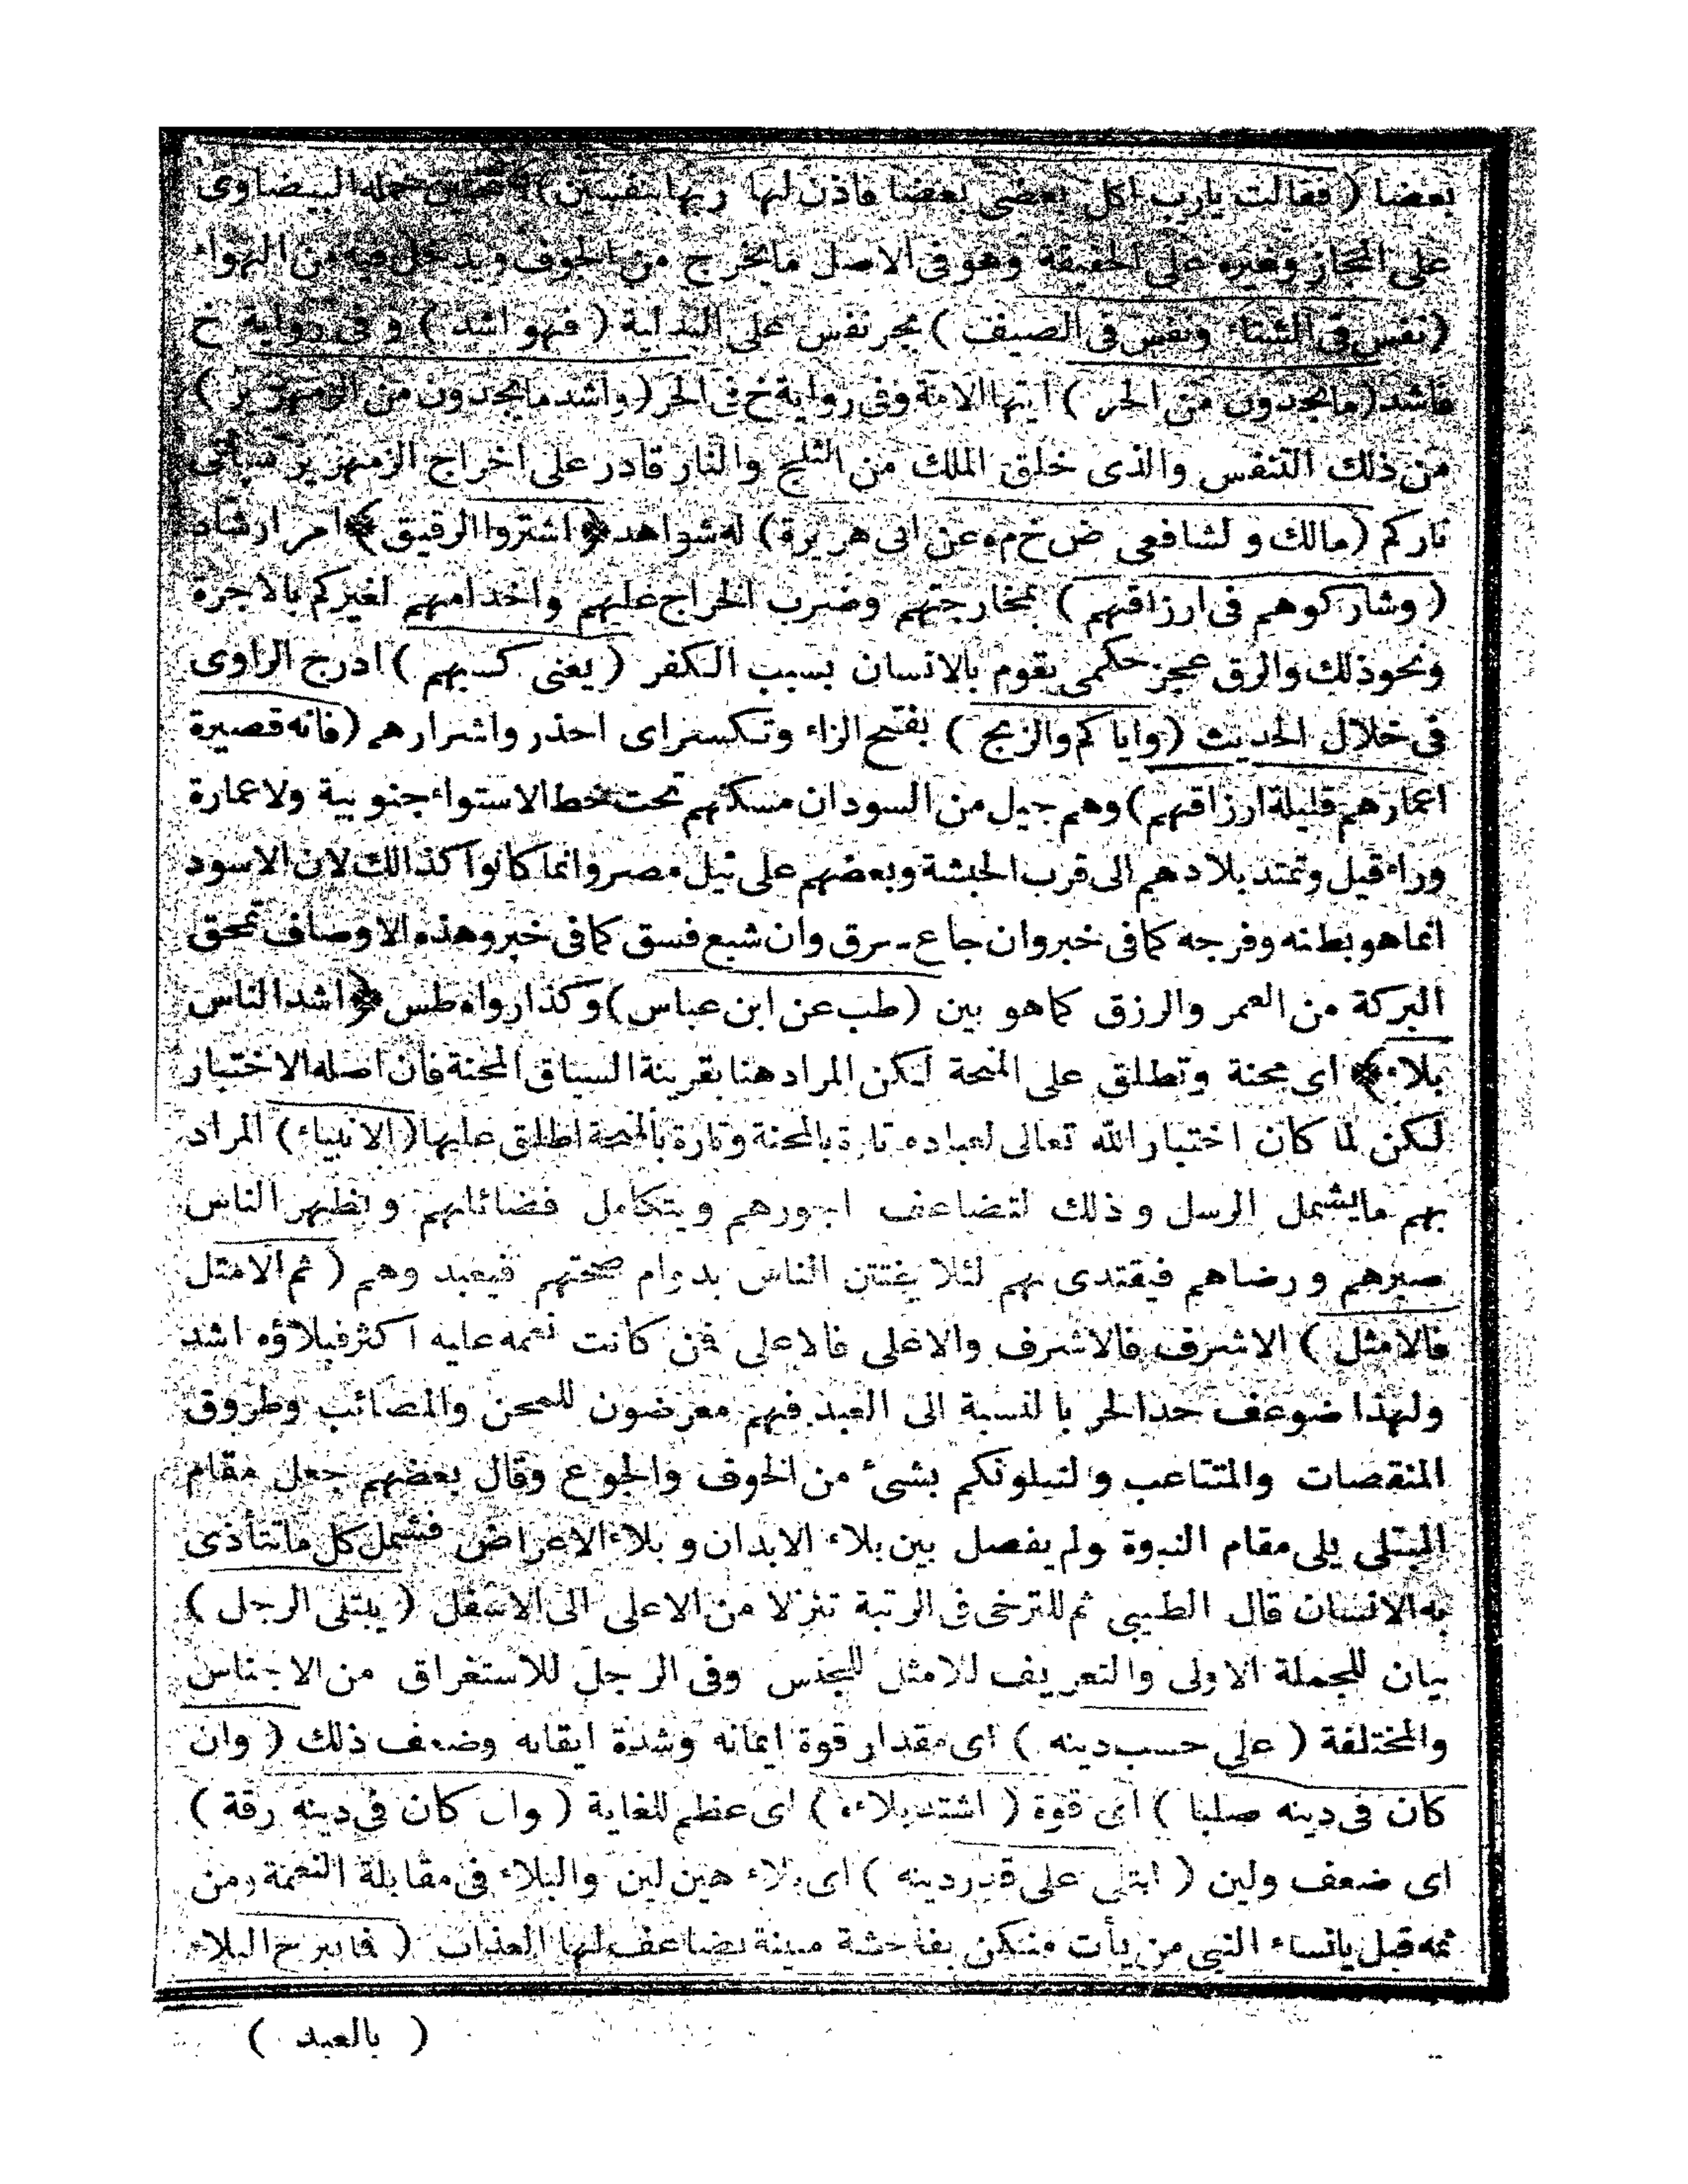 بعضا (فقالت يارب اكل بعضى بعضا فاذن لها ربها بنفسين) حمله البيضاوى
على المجاز وغيره على الحقيقة وهو فى الاصل مايخرج من الجوف ويدخل فيه من الهواء
(نفس فى الشتاء ونفس فى الصيف) بجر نفس على البدلية (فهو اشد) وفى رواية خ
فاشد (ماتجدون من الحر) ايتها الامة وفى رواية خ فى الحر (واشد ماتجدون من الزمهرير)
من ذلك التنفس والذى خلق الملك من الثلج والنار قادر على اخراج الزمهرير سيأتى
ناركم (مالك و لشافعى ض خ م ه عن ابى هريرة) له شواهد ﴿اشتروا الرقيق﴾ امر ارشاد
(وشاركوهم فى ارزاقهم) بمخارجتهم وضرب الخراج عليهم واخدامهم لغيركم بالاجرة
ونحوذلك والرق عجز حكمى يقوم بالانسان بسبب الكفر (يعنى كسبهم) ادرج الراوى
فى خلال الحديث (واياكم والزنج) بفتح الزاء وتكسر اى احذر واشرارهم (فانه قصيرة
اعمارهم قليلة ارزاقهم) وهم جيل من السودان مسكنهم تحت خط الاستواء جنوبية ولا عمارة
وراء قيل وتمتد بلادهم الى قرب الحبشة وبعضهم على نيل مصر وانما كانوا كذالك لان الاسود
انما هو بطنه وفرجه كما فى خبر وان جاع سرق وان شبع فسق كما فى خبر وهذه الاوصاف تمحق
البركة من العمر والرزق كما هو بين (طب عن ابن عباس) وكذا رواه طس ﴿اشد الناس
بلاء﴾ اى محنة وتطلق على المنحة لكن المراد هنا بقرينة السياق المحنة فان اصله الاختبار
لكن لما كان اختبار الله تعالى لعباده تارة بالمحنة وتارة بالمنحة اطلق عليها (الانبياء) المراد
بهم مايشمل الرسل وذلك لتضاعف اجورهم ويتكامل فضائلهم ويظهر الناس
صبرهم ورضاهم فيقتدى بهم لئلا يفتتن الناس بدوام صحتهم فيعبد وهم (ثم الامثل
فالامثل) الاشرف فالاشرف والاعلى فالاعلى فمن كانت نعمه عليه اكثر فبلاؤه اشد
ولهذا ضوعف حد الحر با لنسبة الى العبد فهم معرضون للمحن والمصائب وطروق
المنقصات والمتاعب ولنبلونكم بشىء من الخوف والجوع وقال بعضهم جعل مقام
المبتلى يلى مقام النبوة ولم يفصل بين بلاء الابدان و بلاء الاعراض فشمل كل مايتأذى
به الانسان قال الطيبى ثم للترخى فى الرتبة تنزلا من الاعلى الى الاسفل (يبتلى الرجل)
بيان للجملة الاولى والتعريف للامثل للجنس وفى الرجل للاستغراق من الاجناس
والمختلفة (على حسب دينه) اى مقدار قوة ايمانه وشدة ايقانه وضعف ذلك (وان
كان فى دينه صلبا) اى قوة (اشتد بلاءه) اى عظم للغاية (وان كان فى دينه رقة)
اى ضعف ولين (ابتلى على قدر دينه) اى بلاء هين لين والبلاء فى مقابلة النعمة ومن
ثمه قيل يانساء النبى من يأت منكن بفاحشة مبينة يضاعف لها العذاب (فايبرح البلاء
( بالعبد )